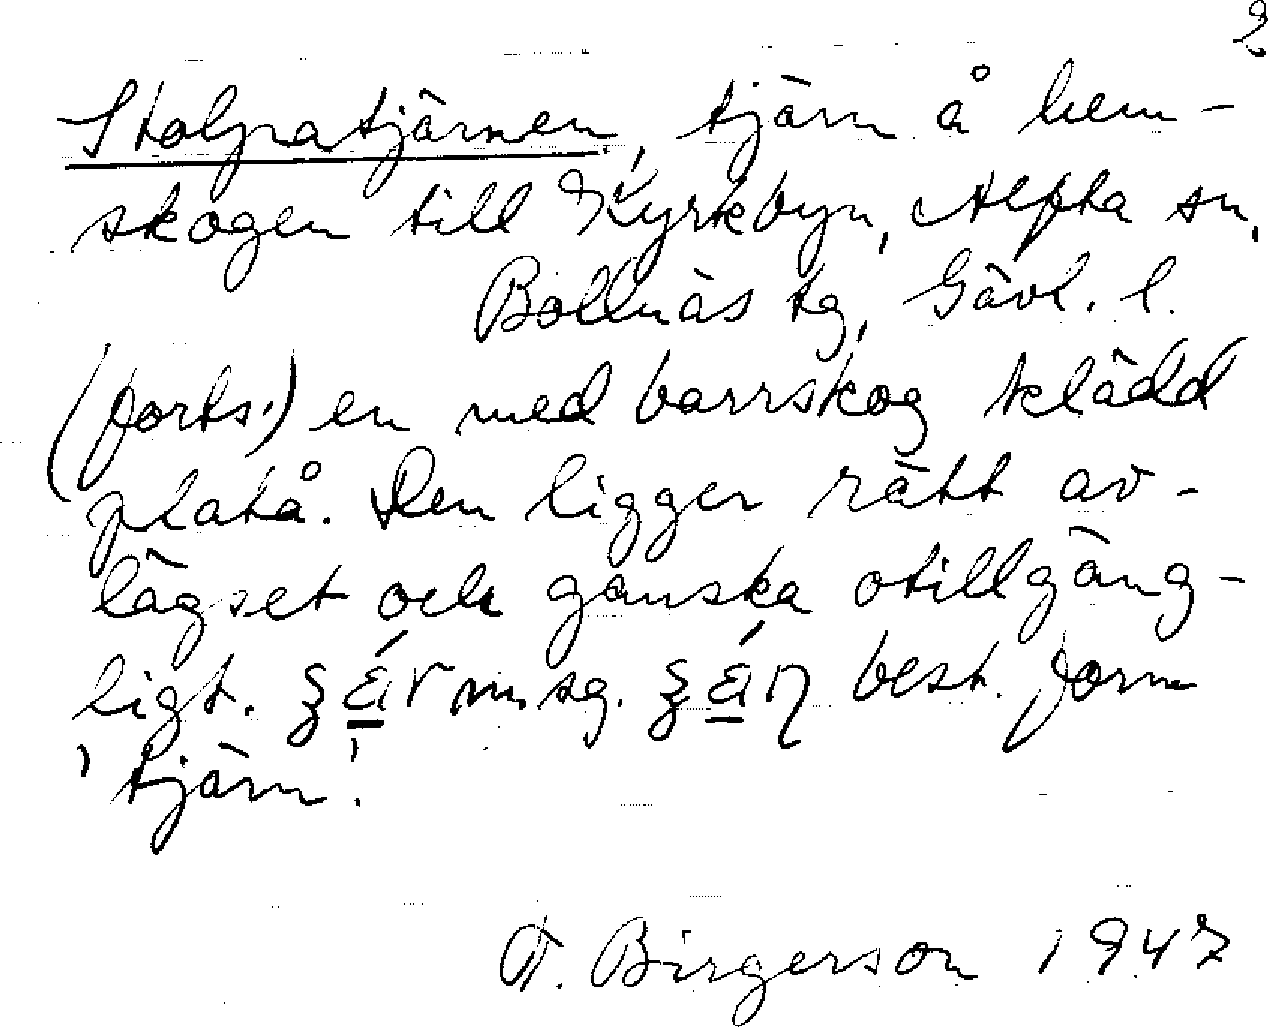 2
Stolpatjärnen, tjärn å hem-
skogen till Kyrkbyn, Alfta sn,
Bollnäs tg, Gävl. l.
(forts.) en med barrskog klädd
platå. Den ligger rätt av-
lägset och ganska otillgäng-
ligt. m. sg. best. form
'tjärn'.
F. Birgerson 1947